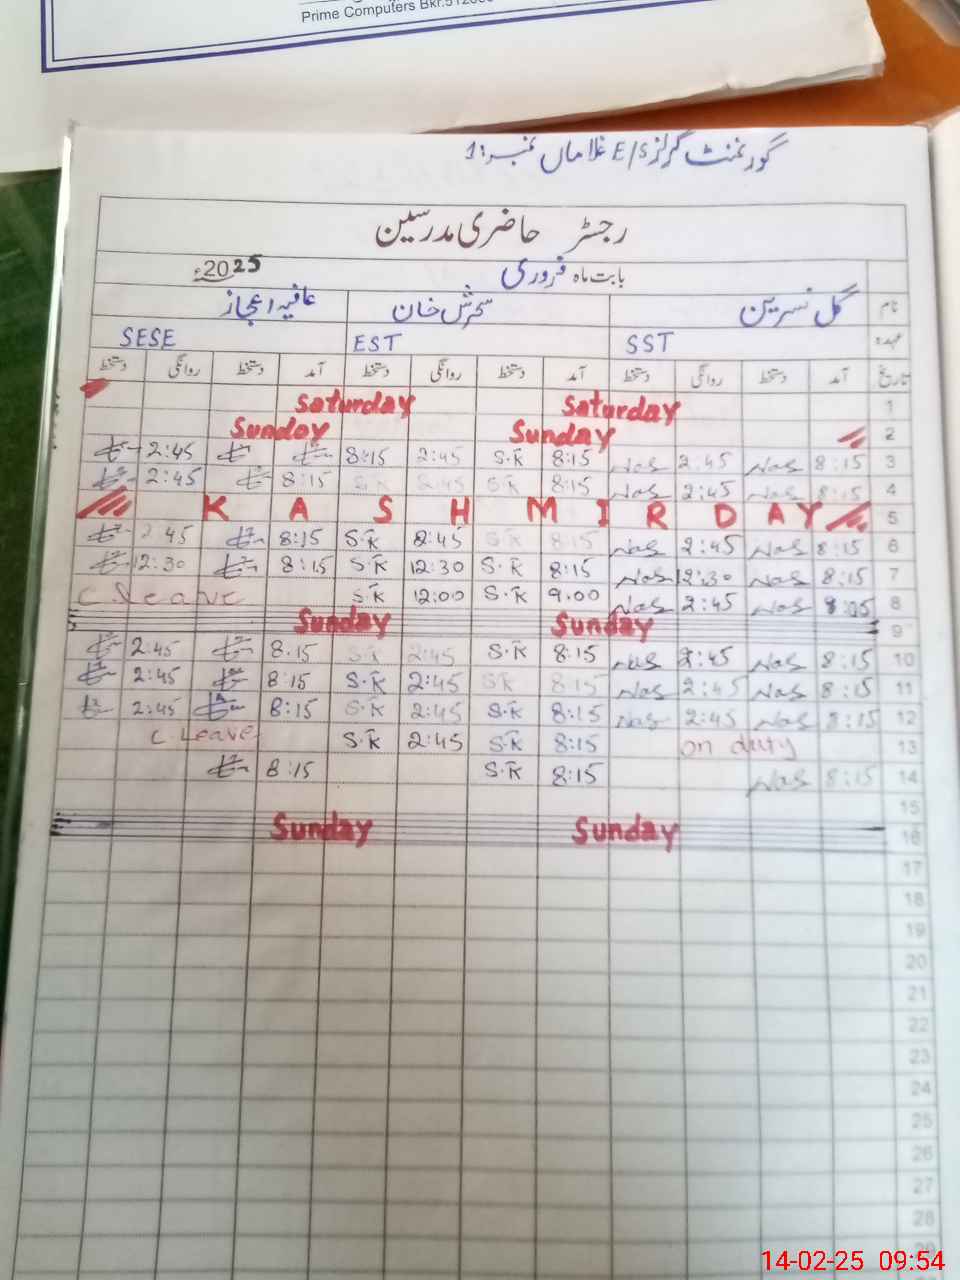 Prime Computers Bkr.
گورنمنٹ گرلز E/S غلاماں نمبر:1
رجسٹر حاضری مدرسین
بابت ماہ فروری 2025ء
نام گل نسرین سحرش خان عافیہ اعجاز
عہدہ SST EST SESE
تاریخ آمد دستخط روانگی دستخط آمد دستخط روانگی دستخط آمد دستخط روانگی دستخط
Saturday Saturday 1
Sunday Sunday 2
2:45 8:15 2:45 S.K 8:15 Nas 2:45 Nas 8:15 3
2:45 8:15 S.K 2:45 S.K 8:15 Nas 2:45 Nas 8:15 4
K A S H M I R D A Y 5
2:45 8:15 S.K 2:45 S.K 8:15 Nas 2:45 Nas 8:15 6
12:30 8:15 S.K 12:30 S.K 8:15 Nas 12:30 Nas 8:15 7
C.leave S.K 12:00 S.K 9:00 Nas 2:45 Nas 8:05 8
Sunday Sunday 9
2:45 8:15 S.K 2:45 S.K 8:15 Nas 2:45 Nas 8:15 10
2:45 8:15 S.K 2:45 S.K 8:15 Nas 2:45 Nas 8:15 11
2:45 8:15 S.K 2:45 S.K 8:15 Nas 2:45 Nas 8:15 12
C.Leave S.K 2:45 S.K 8:15 on duty 13
8:15 S.K 8:15 Nas 8:15 14
15
Sunday Sunday 16
17
18
19
20
21
22
23
24
25
26
27
28
29
14-02-25 09:54